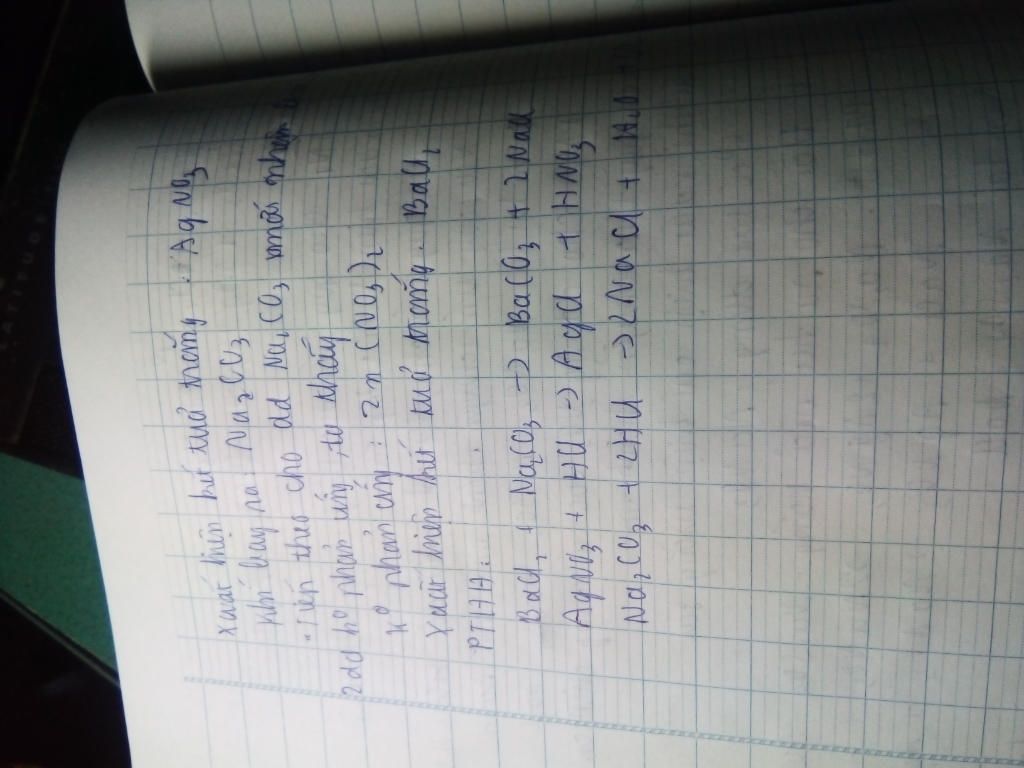 xuất hiện kết tủa trắng : AgNO3
khí bay ra Na2CO3
• Tiếp theo cho dd Na2CO3 mới nhận
2dd ko phản ứng, ta thấy
ko phản ứng : Zn(NO3)2
Xuất hiện kết tủa trắng. BaCl2
PTHH:
BaCl2 + Na2CO3 -> BaCO3 + 2NaCl
AgNO3 + HCl -> AgCl + HNO3
Na2CO3 + 2HCl -> 2NaCl + H2O +